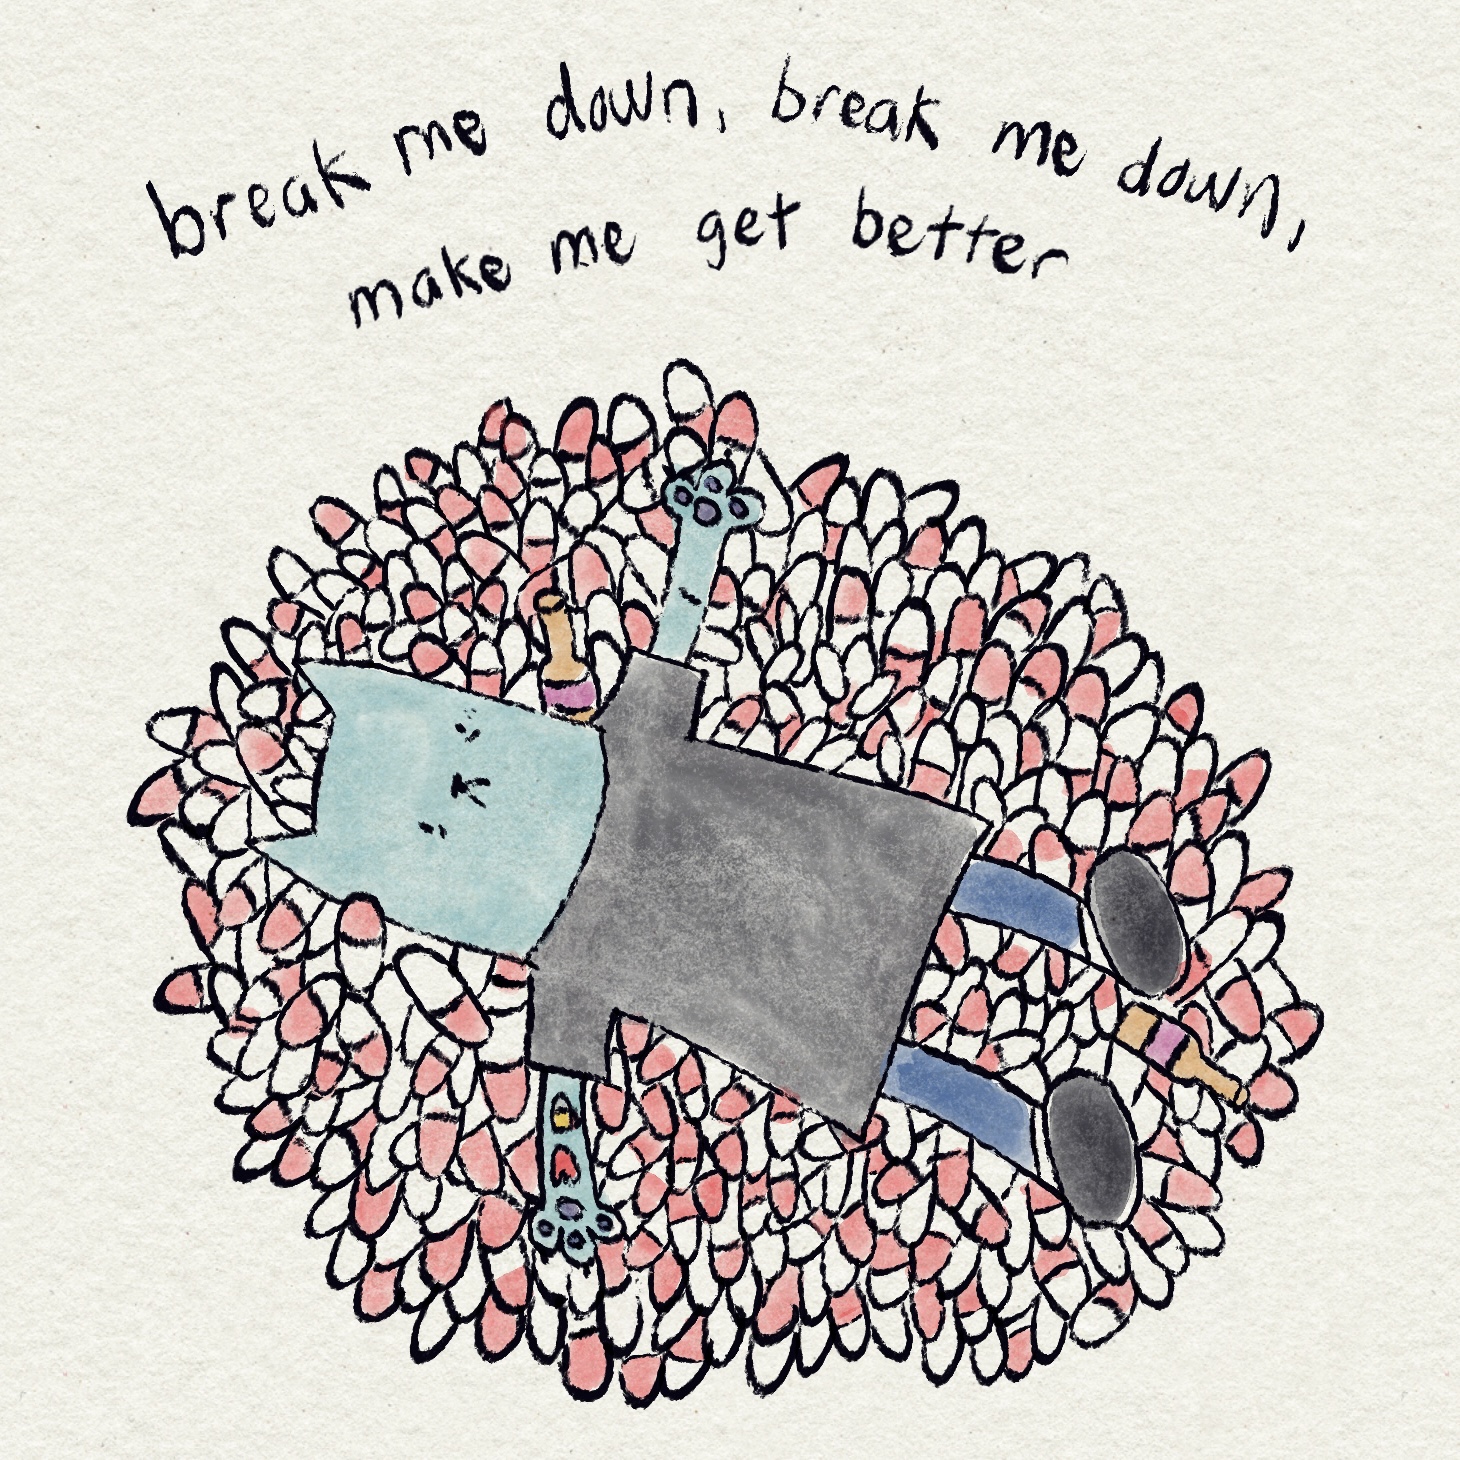 break me down, break me down,
make me get better